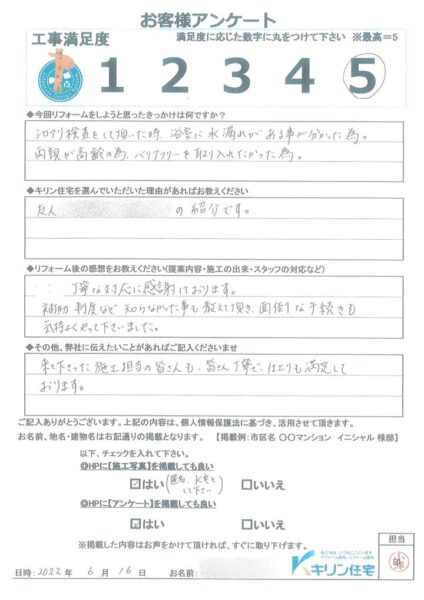 お客様アンケート
工事満足度
満足度に応じた数字に丸をつけて下さい ※最高=5
1 2 3 4 5
◆今回リフォームをしようと思ったきっかけは何ですか?
シロアリ検査をして頂いた時 浴室に水漏れがある事が分かった為。
両親が高齢の為、バリアフリーを取り入れたかった為。
◆キリン住宅を選んでいただいた理由があればお教えください
友人 の紹介です。
◆リフォーム後の感想をお教えください(提案内容・施工の出来・スタッフの対応など)
丁寧な対応に感謝しております。
補助制度など知らなかった事も教えて頂き、面倒な手続きも
気持よくやって下さいました。
◆その他、弊社に伝えたいことがあればご記入くださいませ
来て下さった施工担当の皆さんも、皆さん丁寧で、仕上りも満足して
おります。
ご記入ありがとうございます。上記の内容は、個人情報保護法に基づき、活用させて頂きます。
お名前、地名・建物名は右記通りの掲載となります。 【掲載例:市区名 〇〇マンション イニシャル 様邸】
以下、チェックを入れて下さい。
◎HPに【施工写真】を掲載しても良い
☑はい (匿名、K宅として下さい) □いいえ
◎HPに【アンケート】を掲載しても良い
☑はい □いいえ
※掲載した内容はお声をかけて頂ければ、すぐに取り下げます。
キリン住宅
担当
日時:2022年 6月 16日 お名前: